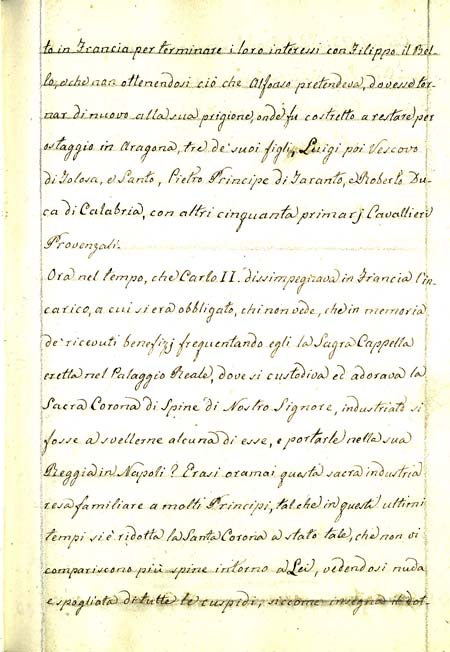 to in Francia per terminare i loro interessi con Filippo il Bel-
lo, e che non ottenendosi ciò che Alfonso pretendeva, dovesse tor-
nar di nuovo alla sua prigione, onde fu costretto a restare per
ostaggio in Aragona, tre de' suoi figli, Luigi poi Vescovo
di Tolosa, e Santo, Pietro Principe di Taranto, e Roberto Du-
ca di Calabria, con altri cinquanta primarj Cavallieri
Provenzali.
Ora nel tempo, che Carlo II. dissimpegnava in Francia l'in-
carico, a cui si era obbligato, chi non vede, che in memoria
de' ricevuti benefizj frequentando egli la Sagra Cappella
eretta nel Palaggio Reale, dove si custodiva ed adorava la
Sacra Corona di Spine di Nostro Signore, industriato si
fosse a svellerne alcuna di esse, e portarle nella sua
Reggia in Napoli? Erasi oramai questa sacra industria
resa familiare a molti Principi, tal che in questi ultimi
tempi si è ridotta la Santa Corona a stato tale, che non vi
compariscono più spine intorno a Lei, vedendosi nuda
e spogliata di tutte le cuspidi, siccome insegna il dot-